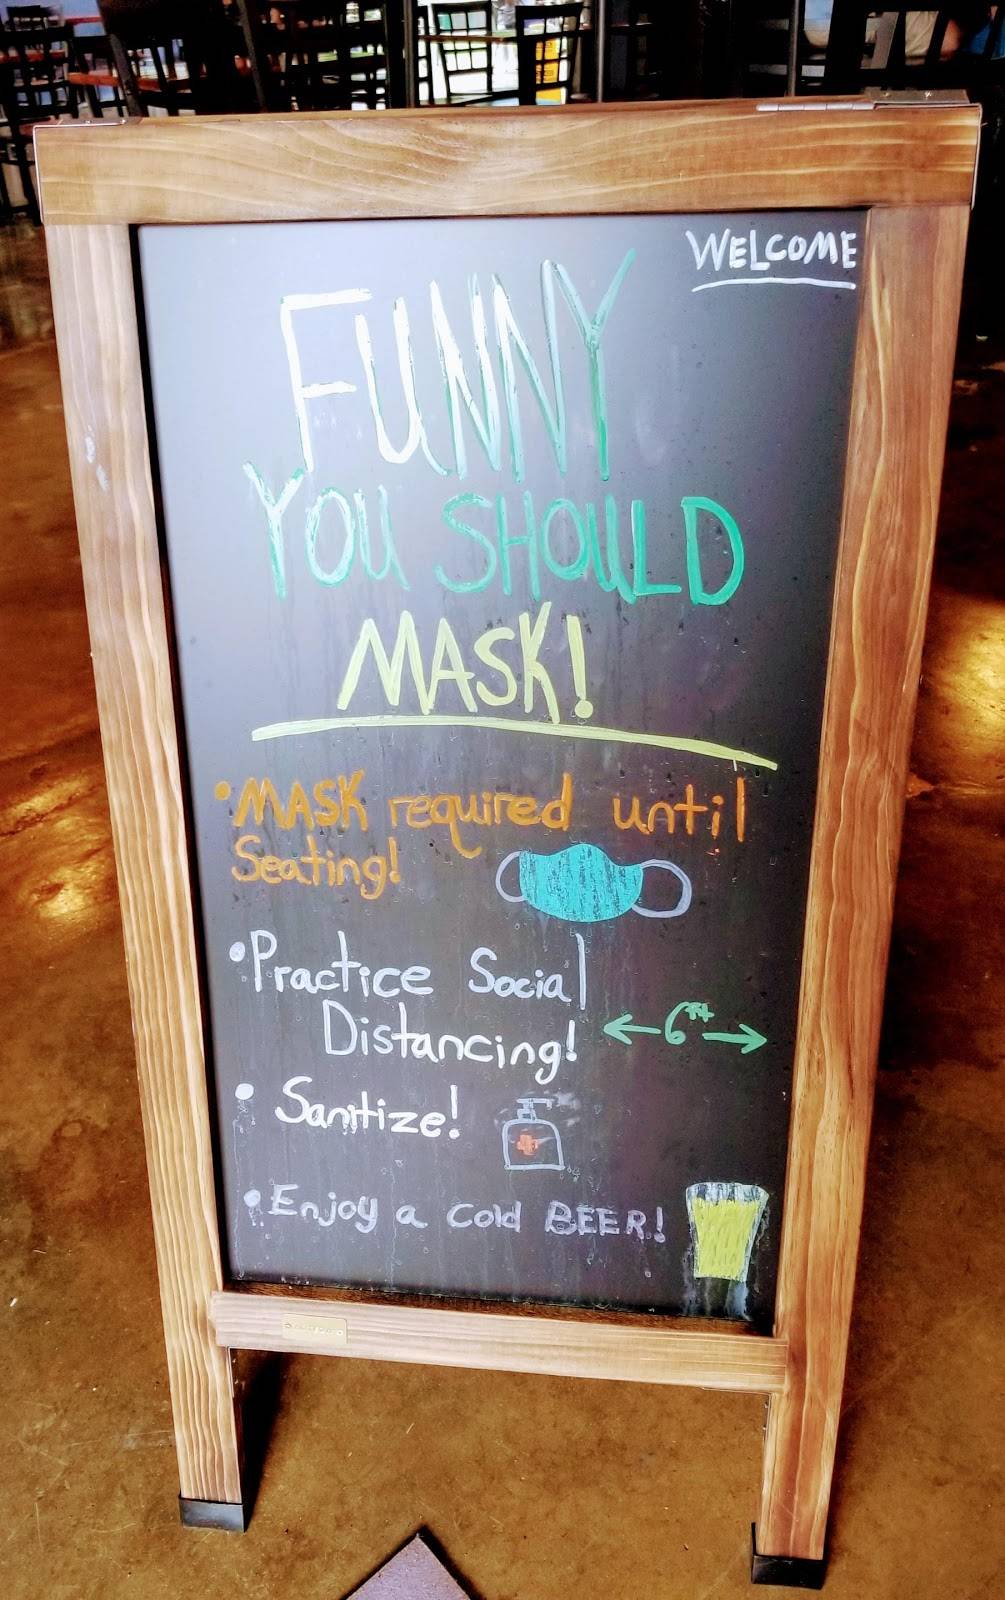 WELCOME
FUNNY
YOU SHOULD
MASK!
• MASK required until
Seating!
• Practice Social
Distancing!
← 6ft →
• Sanitize!
• Enjoy a cold BEER!